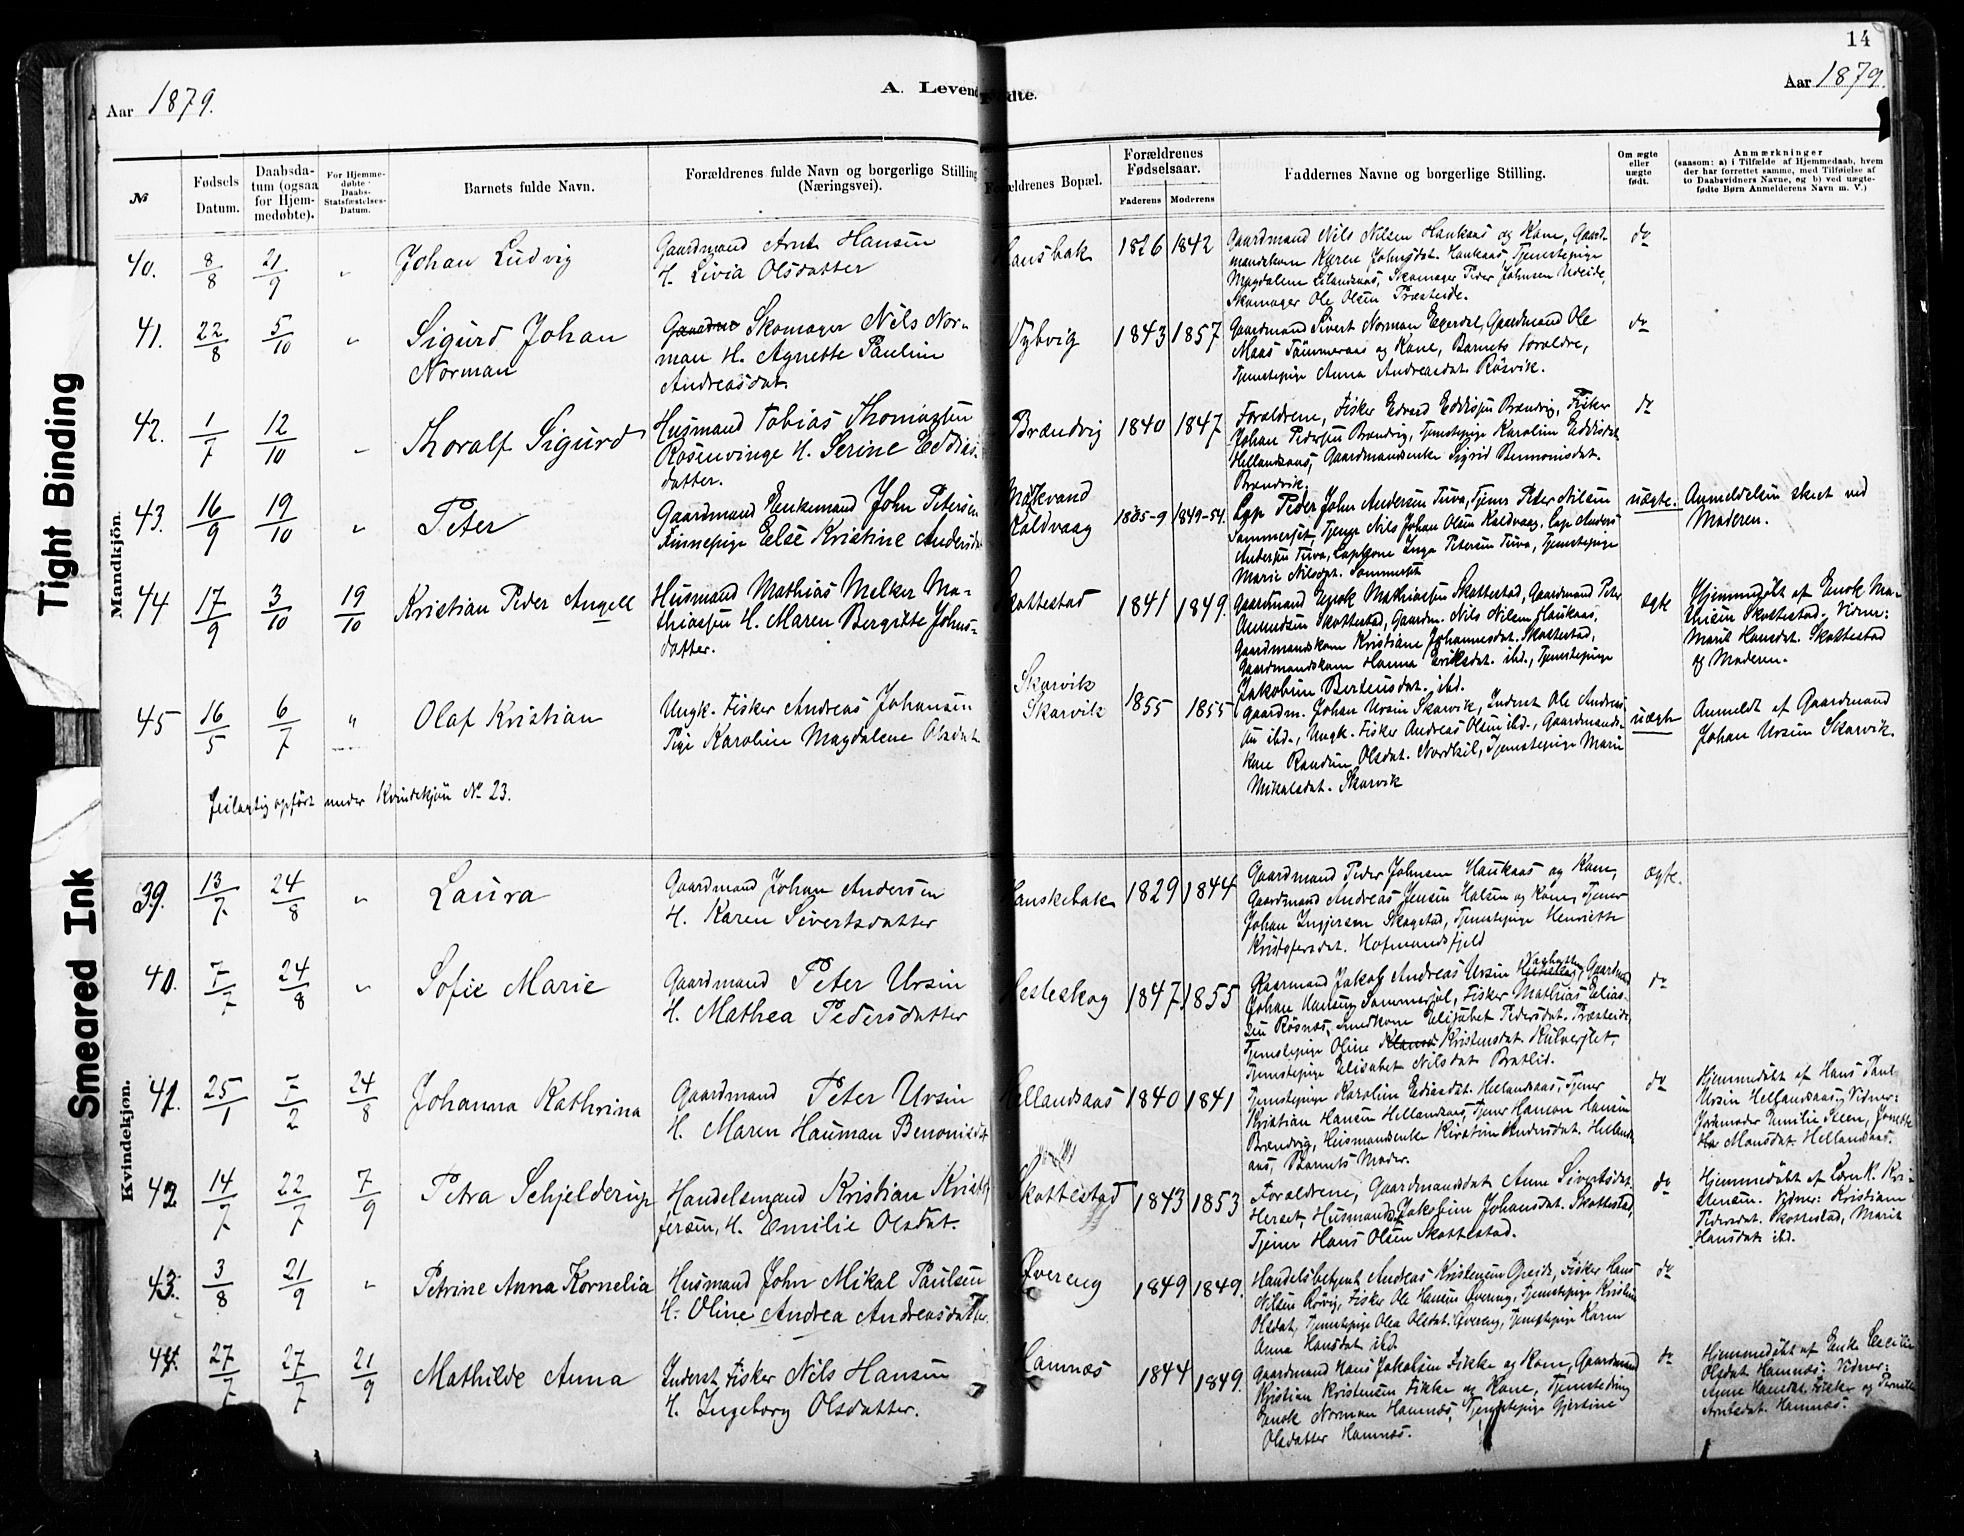 14
Aar 1879.
A. Levend
Fødte.
Aar 1879.
№
Fødsels Datum.
Daabsda-
tum (ogsaa
for Hjem-
medøbte).
For Hjemme-
døbte
Daabs-
Statsfæstelses-
Datum.
Barnets fulde Navn.
Forældrenes fulde Navn og borgerlige Stilling
(Næringsvei).
Forældrenes Bopæl.
Forældrenes
Fødselsaar.
Faderens Moderens
Faddernes Navne og borgerlige Stilling.
Om ægte
eller
uægte
født.
Anmærkninger
(saasom: a) i Tilfælde af Hjemmedaab, hvem
der har forrettet samme, med Tilføielse af
to Daabsvidners Navne, og b) ved uægte-
fødte Børn Anmelderens Navn m. V.)
Tight Binding
Smeared Ink
Mandkjön.
40. 8/8 21/9 " Johan Ludvig
Gaardmand Arnt Hansen
H. Livia Olsdatter
Hansbak 1826 1842
Gaardmand Nils Nilsen Haukaas og Kone, Gaard-
mandskone Karen Johnsdat. Haukaas, Tjenestepige
Magdalene Eilandsaas, Skomager Peder Johnsen Udeide,
Skomager Ole Olsen Præsteide.
do
41. 22/8 5/10 " Sigurd Johan
Norman
Skomager Nils Nor-
man H. Agnette Pauline
Andreasdat.
Dybvig 1843 1857
Gaardmand Sivert Norman Egerdal, Gaardmand Ole
Maas Tømmeraas og Kone, Barnets Forældre,
Tjenestepige Anna Andreasdat. Røsvik.
do
42. 1/7 12/10 " Thoralf Sigurd
Husmand Tobias Thomassen
Rosenvinge H. Serine Eddias-
datter.
Brændvig 1840 1847
Forældrene, Fisker Edvard Eddissen Brændvig, Fisker
Johan Pedersen Brændvig, Tjenestepige Karoline Eddisdat.
Hellandsaas, Gaardmandsenke Sigrid Bennonisdat.
Brændvik.
do
43. 16/9 19/10 " Peter
Gaardmand Enkemand John Petersen
Finnepige Else Kristine Andersdat
Mørkvand
Kaldvaag 1835-9 1849-54.
Lap Peder John Andersen Tuva, Tjener Peder Nilsen
Sommerset, Tjener Nils Johan Olsen Kaldvaag, Lap Anders
Andersen Tuva, Lapkone Inga Petersen Tuva, Tjenestepige
Marie Nilsdat. Sommerset
uægte. Anmeldelsen skeet ved
Moderen.
44 17/9 3/10 19/10 Kristian Peder Angell
Husmand Mathias Melker Ma-
thiassen H. Maren Bergitte Johns-
datter.
Skottestad 1841 1849.
Gaardmand Enok Mathiassen Skottestad, Gaardmand Peter
Amundsen Skottestad, Gaardm. Nils Nilsen Haukaas,
Gaardmandskone Kristiane Johannesdat. Skottestad,
Gaardmandskone Hanna Eriksdat. ibd., Tjenestepige
Jakobine Bertensdat. ibd.
ægte Hjemmedøbt af Enok Ma-
thisen Skottestad. Vidner:
Marit Hansdat. Skottestad
og Moderen.
45 16/5 6/7 " Olaf Kristian
Ungk. Fisker Andreas Johansen
Pige Karoline Magdalene Olsdat.
Skarvik
Skarvik 1855 1855
Gaardm. Johan Ursin Skarvik, Inderst Ole Andreas-
sen ibd., Ungk. Fisker Andreas Olsen ibd., Gaardmands-
kone Randine Olsdat. Nordkil, Tjenestepige Marie
Mikalsdat. Skarvik
uægte Anmeldt af Gaardmand
Johan Ursin Skarvik.
feilagtig opført under Kvindekjøn No 23.
Kvindekjøn.
39. 13/7 24/8 " Laura
Gaardmand Johan Andersen
H. Karen Sivertsdatter
Hanskebak 1829 1844
Gaardmand Peder Johnsen Haukaas og Kone,
Gaardmand Andreas Jensen Halsen og Kone, Tjener
Johan Ingjersen Skagstad, Tjenestepige Henriette
Kristofersdat. Hofmandsfjeld
ægte.
40. 7/7 24/8 " Sofie Marie
Gaardmand Peter Ursin
H. Mathea Pedersdatter
Hesteskog 1847 1855
Gaarmand Jakob Andreas Ursin, Gaardmand
Johan Hansen Sommersel, Fisker Mathias Elias-
sen Røsnæs, Smedkone Elisabet Pedersdat. Præsteide,
Tjenestepige Oline Kristensdat. Kulverflet,
Tjenestepige Elisabet Nilsdat. Bratlid.
do
41. 25/1 7/2 24/8 Johanna Kathrina
Gaardmand Peter Ursin
H. Maren Hauman Benonisdat
Hellandsaas 1840 1841
Tjenestepige Karoline Ediasdat. Hellandsaas, Tjener
Kristian Hansen Hellandsaas, Tjener Hansen Hansen
Brændvig, Husmandsenke Kirstine Andersdat. Hellands-
aas, Barnets Moder.
do Hjemmedøbt af Hans Paul
Ursin Hellandsaas, Vidner:
Jordemoder Emilie Steen, Jonette
Monsdat. Hellandsaas.
42 14/7 22/7 7/9 Petra Schjelderup
Handelsmand Kristian Kristof-
fersen, H. Emilie Olsdat.
Skottestad 1843 1853
Forældrene, Gaardmandsdat. Anne Sivertsdat.
Herset, Husmands Jakobine Johansdat. Skottestad,
Tjener Hans Olsen Skottestad.
do Hjemmedøbt af Lærer K. Kri-
stensen. Vidner: Kristiane
Pedersdat. Skottestad, Marit
Hansdat. ibd.
43. 3/8 21/9 " Petrine Anna Kornelia
Husmand John Mikal Paulsen
H. Oline Andrea Andreasdatter.
Øvereng 1849 1849.
Handelsbetjent Andreas Kristensen Opeide, Fisker Hans
Nilsen Rørvig, Fisker Ole Hansen Øvereng, Tjenestepige Kristine
Olsdat, Tjenestepige Olea Olsdat. Øvereng, Tjenestepige Karen
Anna Hansdat. ibd.
do
44. 27/7 27/7 21/9 Mathilde Anna
Inderst Fisker Nils Hansen
H. Ingeborg Olsdatter.
Hamnæs 1844 1849.
Gaardmand Hans Jakobsen Fikke og Kone, Gaardmand
Kristian Kristensen Fikke og Kone, Tjenestedreng
Enok Norman Hamnæs, Tjenestepige Gjertine
Olsdatter Hamnæs.
do Hjemmedøbt af Enke Cecilie
Olsdat. Hamnæs. Vidner:
Anne Hansdat. Fikke og Pernille
Arntsdat. Hamnæs.